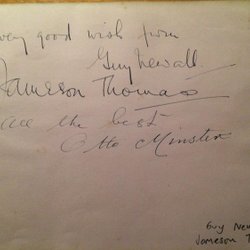 every good wish from
Guy Newall.
Jameson Thomas
all the best
Otto Minster
Guy New
Jameson T